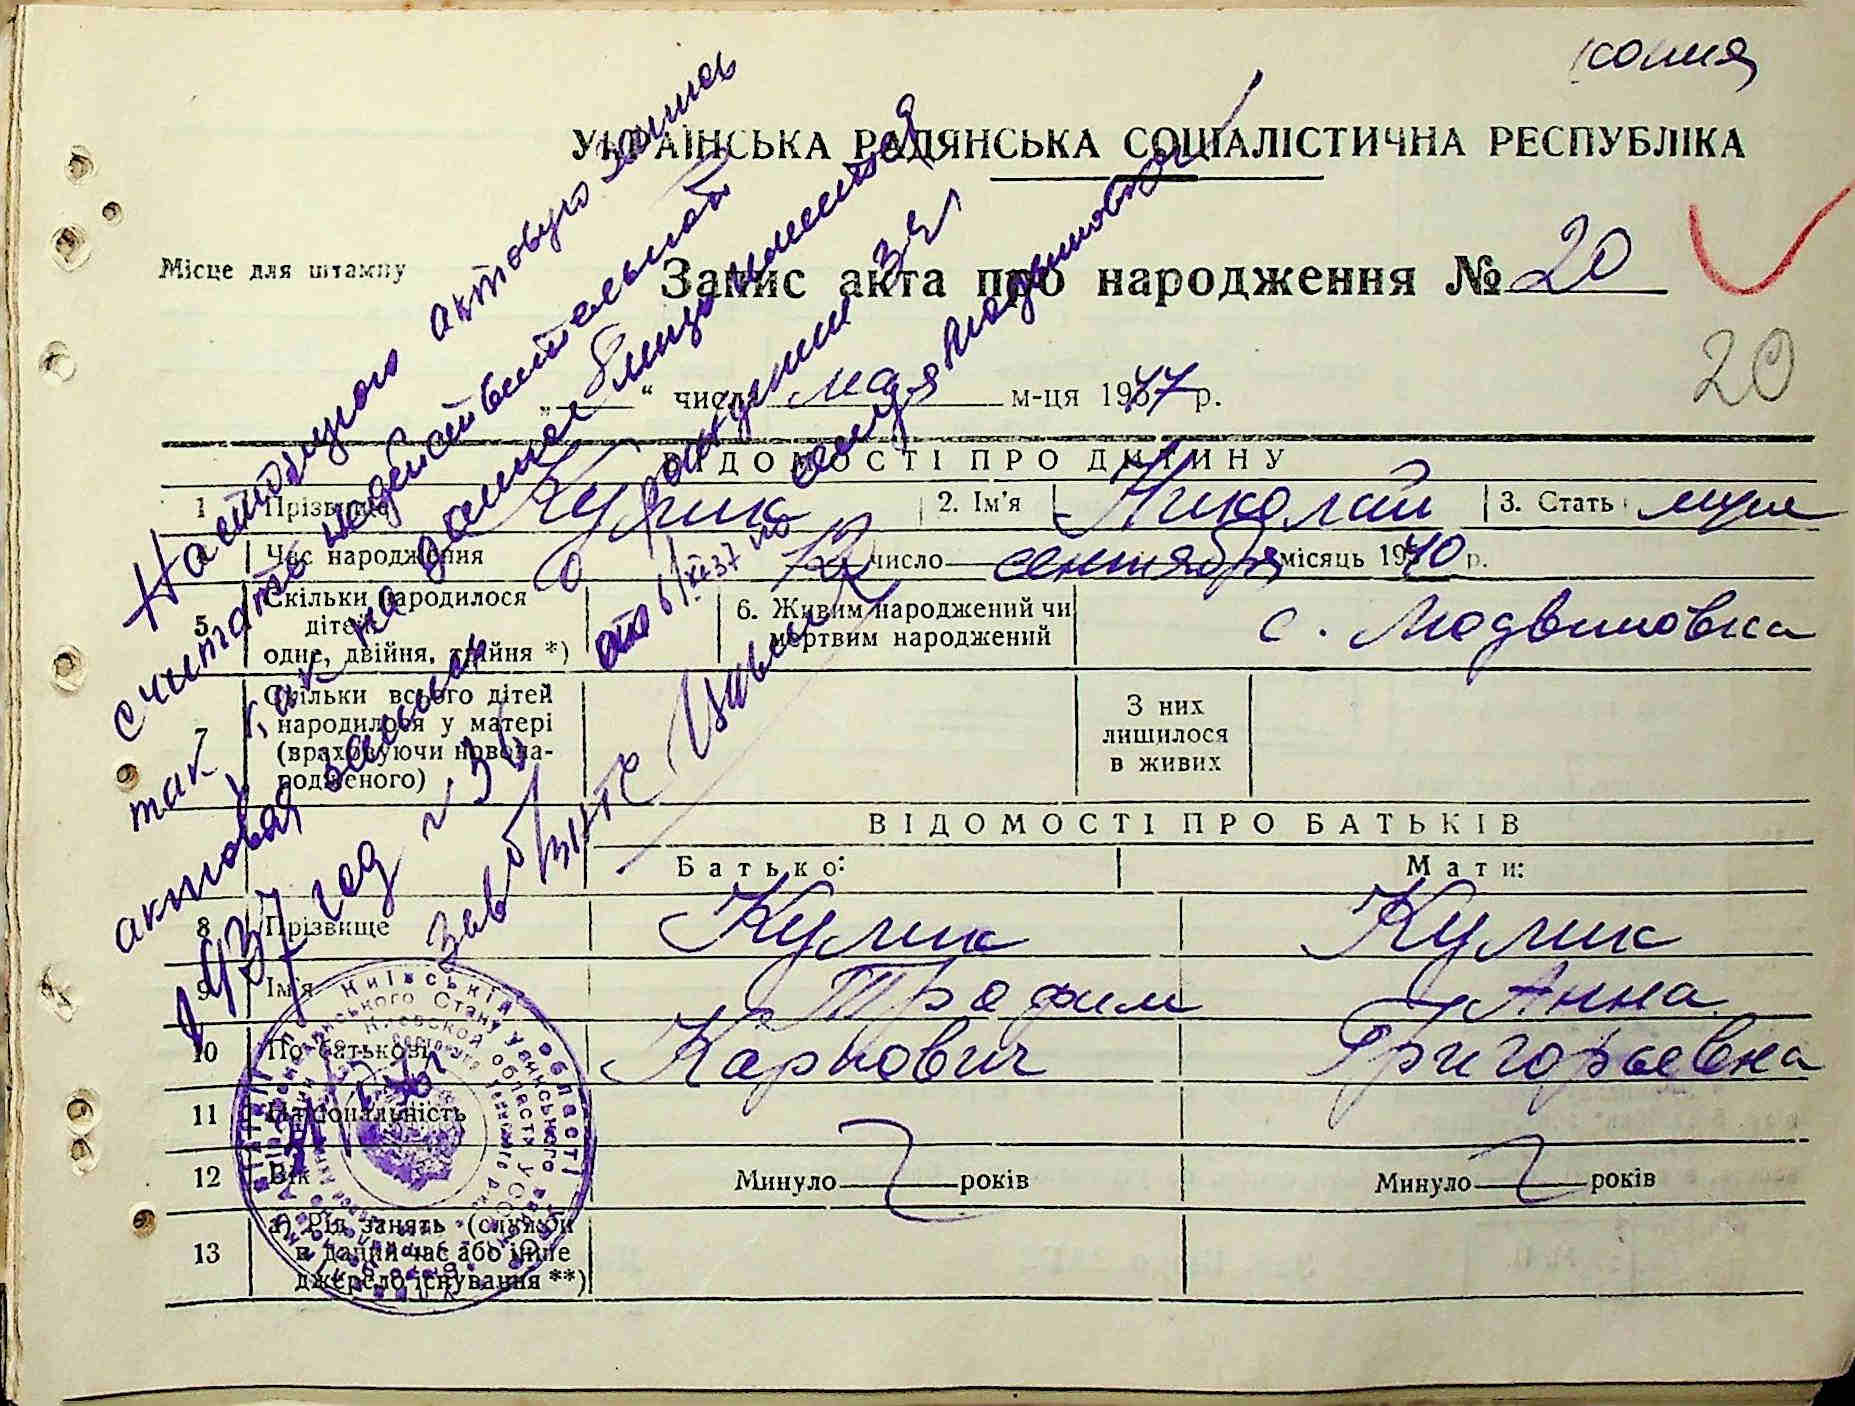 копия
УКРАЇНСЬКА РАДЯНСЬКА СОЦІАЛІСТИЧНА РЕСПУБЛІКА
Місце для штампу
Запис акта про народження № 20
20
„ “ числа мая м-ця 1947 р.
ВІДОМОСТІ ПРО ДИТИНУ
1 Прізвище Кулик 2. Ім'я Николай 3. Стать муж
4 Час народження 12 число сентября місяць 1940 р.
5 Скільки народилося дітей: одне, двійня, трійня *) 6. Живим народжений чи мертвим народжений с. Людвиновка
7 Скільки всього дітей народилося у матері (враховуючи новонародженого) З них лишилося в живих
ВІДОМОСТІ ПРО БАТЬКІВ
Батько: Мати:
8 Прізвище Кулик Кулик
9 Ім'я Трофим Анна
10 По батькові Карпович Григорьевна
11 Національність
12 Вік Минуло років Минуло років
13 а) Рід занять (служби в даний час або інше джерело існування **)
Настоящую актовую запись
считать недействительной
так как на данное лицо имеется
актовая запись о рождении за
1937 год № 31 от 6/XI-37 по селу Людвиновка